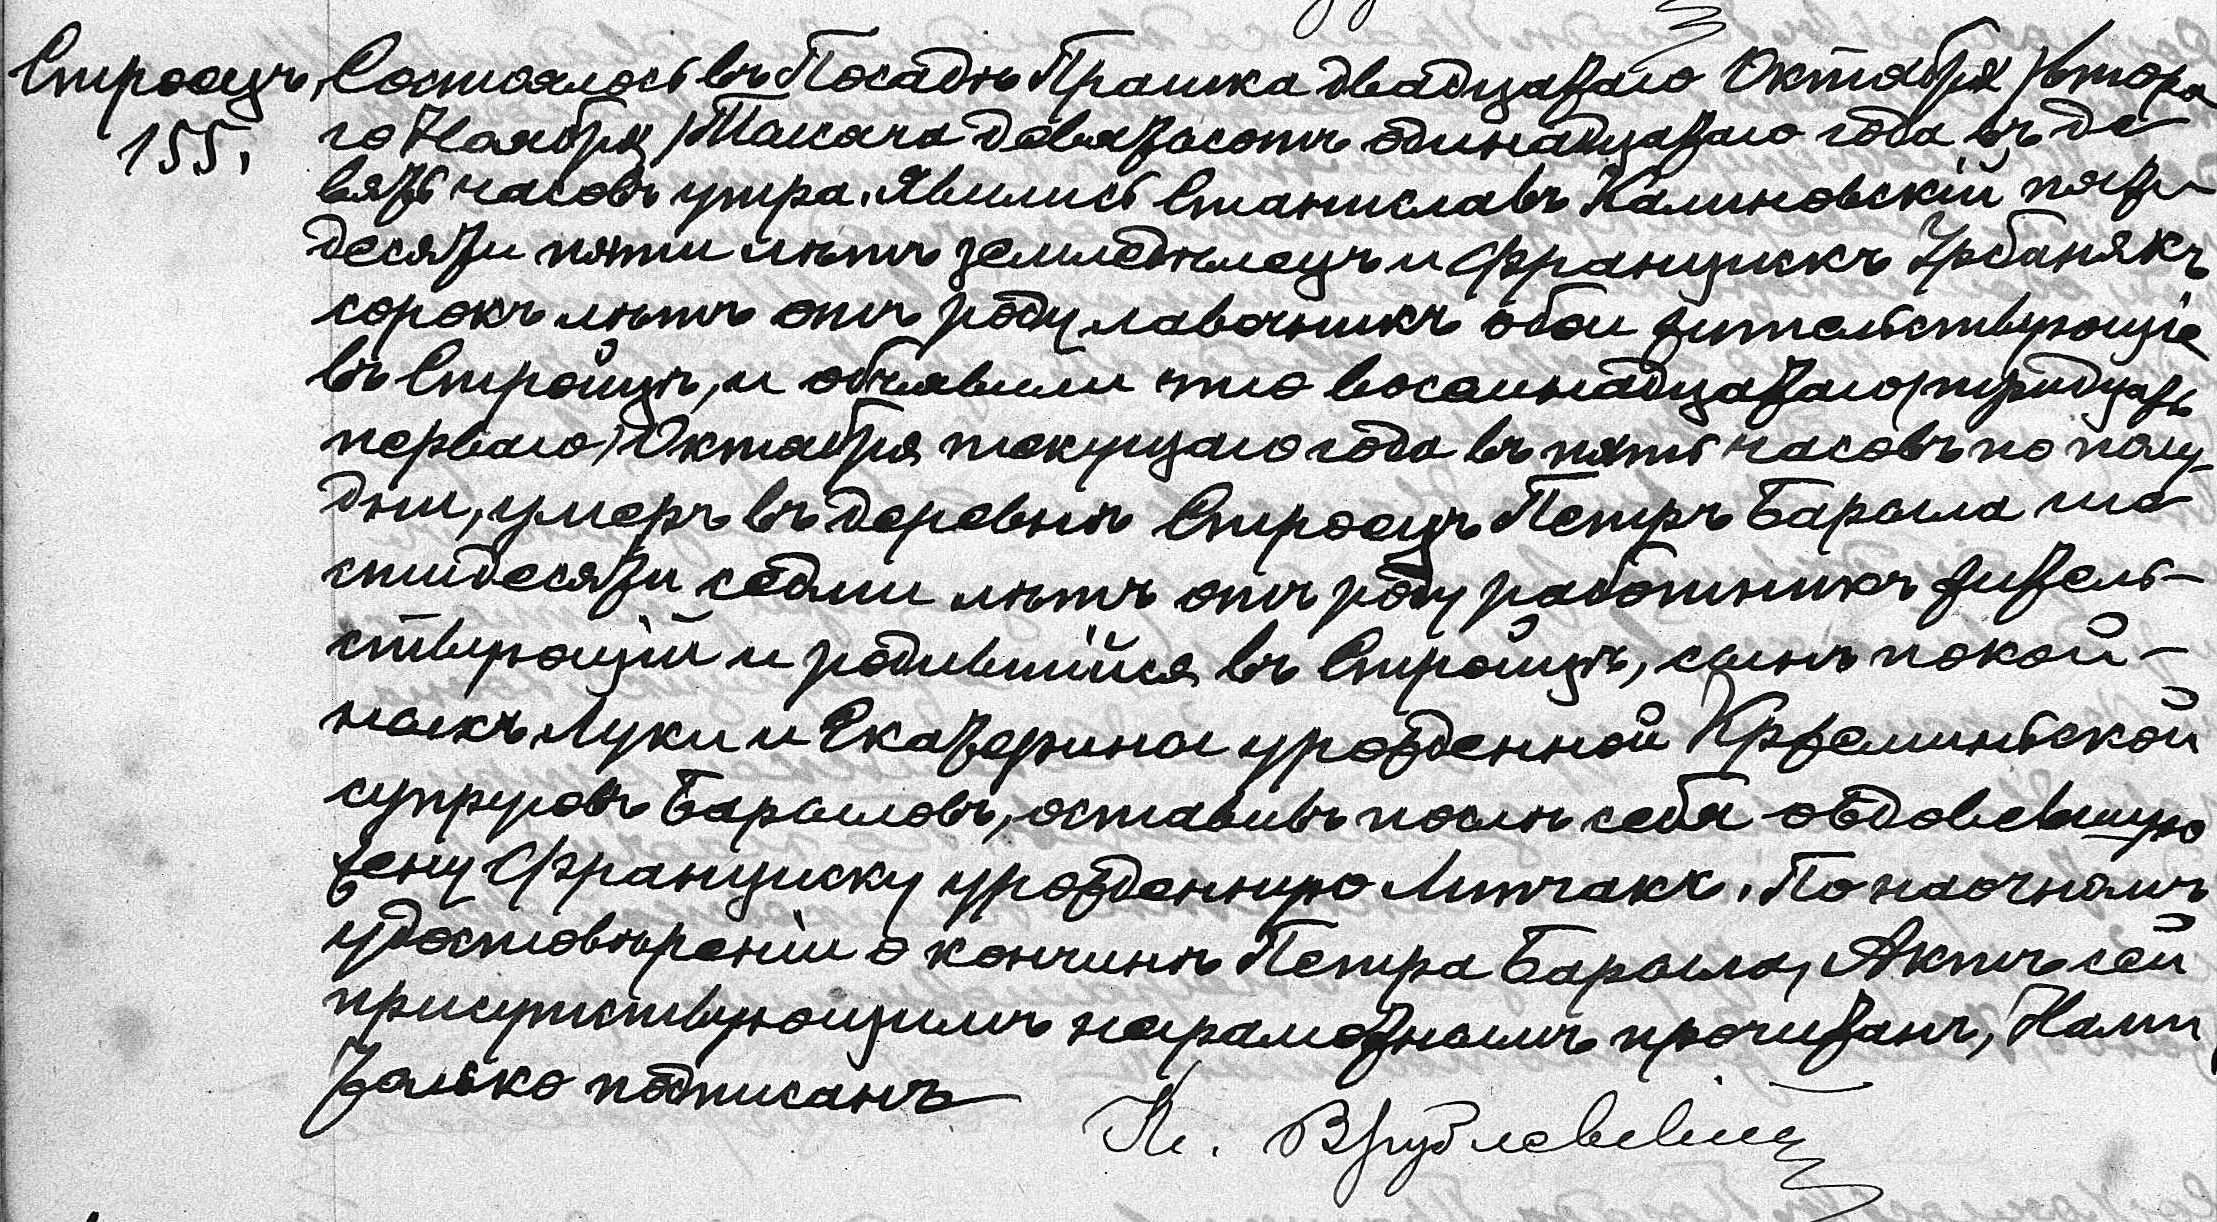 Строецъ
155.
Состоялось въ Посадѣ Прашка двадцатаго Октября /втора
го Ноября/ Тысяча девятьсотъ одинадцатаго года въ де
вять часовъ утра. Явились Станиславъ Калиновскій пяти
десяти пяти лѣтъ земледѣлецъ и Францискъ Урбанякъ
сорокъ лѣтъ отъ роду лавочникъ обои жительствующіе
въ Стройцѣ, и объявили что восемнадцатаго /тридцать
перваго/ Октября текущаго года въ пять часовъ по полу
дни, умеръ въ деревнѣ Строецъ Петръ Барыла ше
стидесяти седми лѣтъ отъ роду работникъ житель-
ствующій и родившійся въ Стройцѣ, сынъ покой-
ныхъ Луки и Екатерины урожденной Крземинской
супруговъ Барыловъ, оставивъ послѣ себя овдовевшую
жену Франциску урожденную Литчакъ. По наочномъ
удостовѣреніи о кончинѣ Петра Барыла, Актъ сей
присутствующимъ неграмотнымъ прочитанъ, Нами
только подписанъ
Кс. Врублевскій